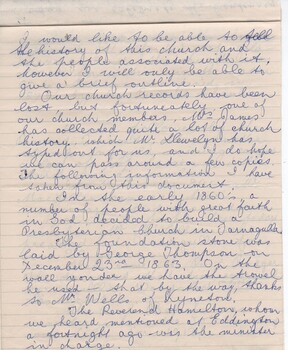 I would like to be able to tell
the history of this church and
the people associated with it,
however I will only be able to
give a brief outline.
Our church records have been
lost but fortunately, one of
our church members, Mrs James
has collected quite a lot of church
history, which Mr Llewelyn has
typed out for us, and I do hope
we can pass around a few copies.
The following information I have
taken from this document.
In the early 1860's a
number of people with great faith
in God, decided to build a
Presbyterian Church in Tarnagulla.
The foundation stone was
laid by George Thompson on
December 23rd - 1863. On the
wall yonder we have the trowel
he used - that by the way, thanks
to Mr Wells of Kyneton.
The Reverend Hamilton, whom
we heard mentioned at Eddington
a fortnight ago - was the minister
in charge.